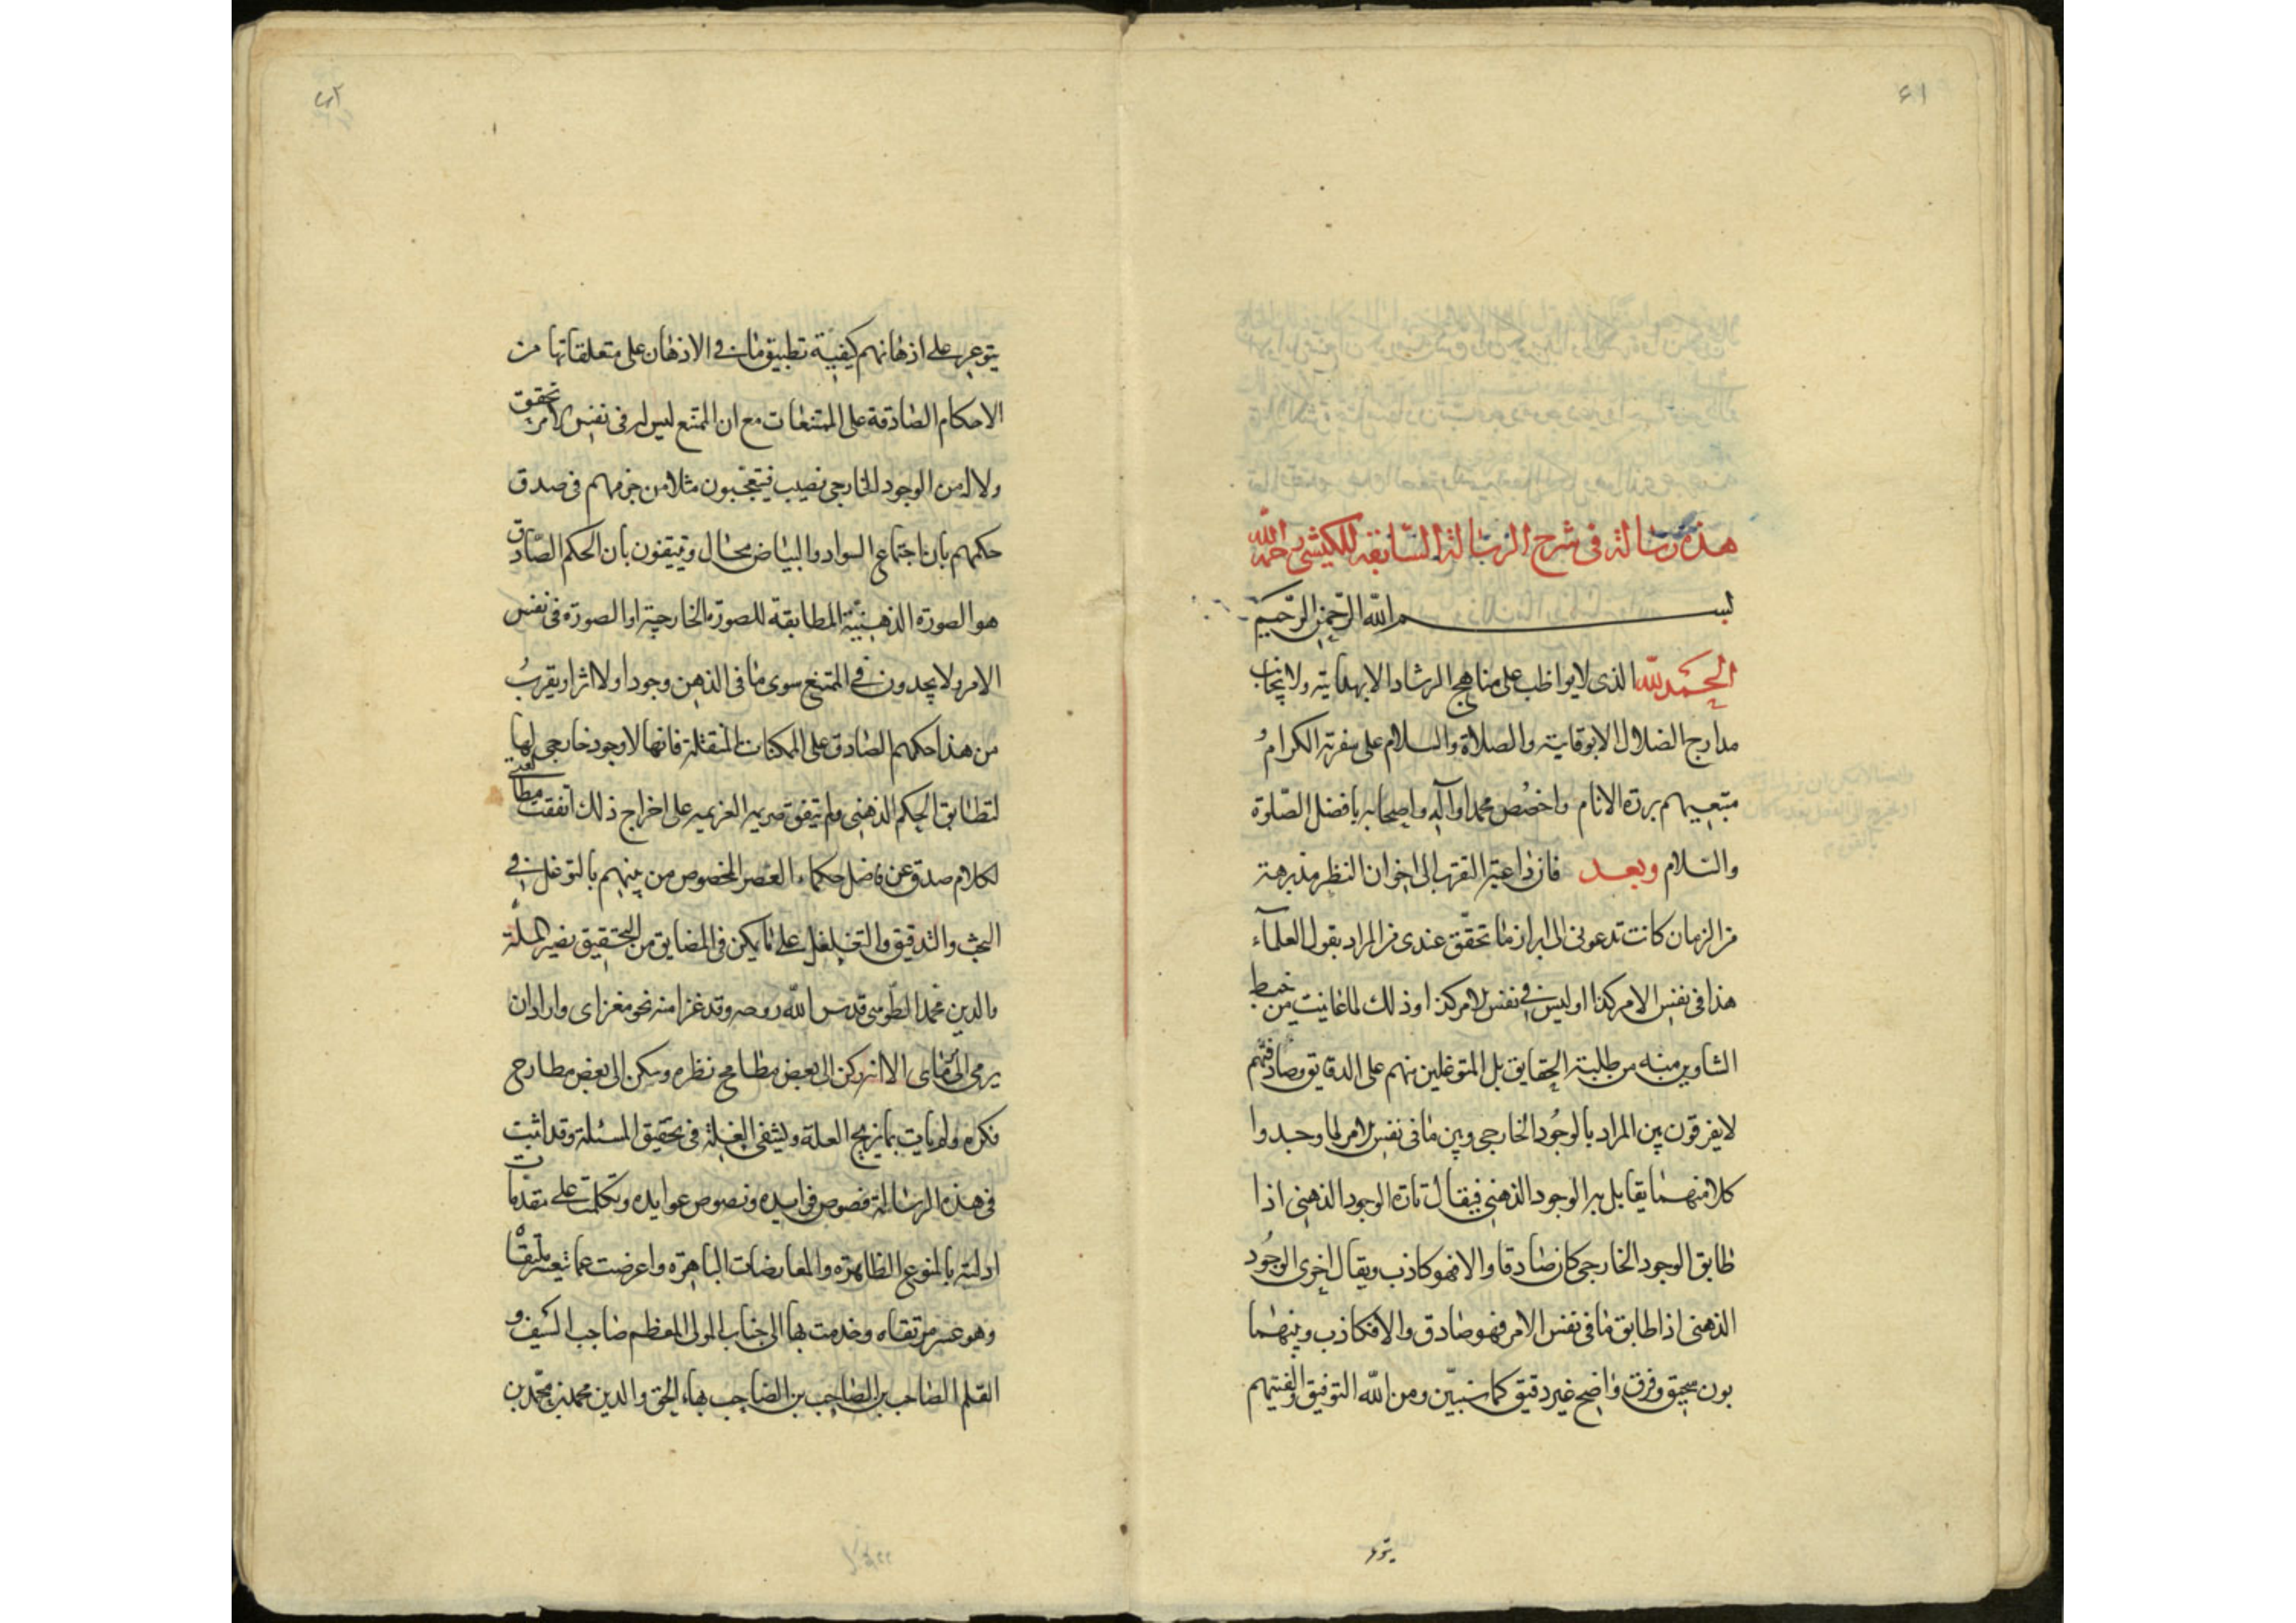 ٤١
هذه رسالة فى شرح الرسالة السابقة للكيشى رحمه الله
بسم الله الرحمن الرحيم
الحمد لله الذى لا يواظب على مناهج الرشاد الا بهدايته ولا يجانب
مدارج الضلال الا بوقايته والصلاة والسلام على سفرته الكرام
متبعيهم بررة الانام واخصص محمدا وآله واصحابه بافضل الصلوة
والسلام وبعد فان داعية التقرب الى اخوان النظر مذ برهة
من الزمان كانت تدعونى الى ابراز ما تحقق عندى من المراد بقول العلمآء
هذا فى نفس الامر كذا او ليس فى نفس الامر كذا وذلك لما عانيت من خبط
الشاوين منه من طلبة الحقايق بل المتوغلين منهم على الدقايق وصادفتهم
لا يفرقون بين المراد بالوجود الخارجى وبين ما فى نفس الامر لما وجدوا
كلا منهما يقابل به الوجود الذهنى فيقال تارة الوجود الذهنى اذا
طابق الوجود الخارجى كان صادقا والا فهو كاذب ويقال اخرى الوجود
الذهنى اذا طابق ما فى نفس الامر فهو صادق والا فكاذب وبينهما
بون سحيق وفرق واضح غير دقيق كما سنبين ومن الله التوفيق والفيتهم
يتوعر
يتوعر على اذهانهم كيفية تطبيق ما فى الاذهان على متعلقاتها من
الاحكام الصادقة على الممتنعات مع ان الممتنع ليس له فى نفس الامر تحقق
ولا له من الوجود الخارجى نصيب فيتعجبون مثلا من جزمهم فى صدق
حكمهم بان اجتماع السواد والبياض محال ويتيقنون بان الحكم الصادق
هو الصورة الذهنية المطابقة للصورة الخارجية او الصورة فى نفس
الامر ولا يجدون فى الممتنع سوى ما فى الذهن وجودا ولا اثرا ويقرب
من هذا حكمهم الصادق على الممكنات فانها لا وجود خارجى لها
لتطابق الحكم الذهنى ولم يتفق صريمة العزيمة على اخراج ذلك اتفقت
لكلام صدق عن فاضل حكماء العصر المخصوص من بينهم بالتوغل فى
البحث والتدقيق والتغلغل على ما يكن فى المضايق من التحقيق نصير الملة
والدين محمد الطوسى قدس الله روحه وقد غزا منه نحو مغزاى واراد ان
يرمى الى مرماى الا انه ركن الى بعض مطامح نظره وسكن الى بعض مطارح
فكره ولم يات بما يزيح العلة ويشفى الغلة فى تحقيق المسئلة وقد اثبت
فى هذه الرسالة فصوص فرايده ونصوص عوايده وتكلمت على مقدمات
ادلته بالمنوع الظاهرة والمعارضات الباهرة واعرضت عما
وهو عسر مرتقاه وخدمت بها الى جناب المولى المعظم صاحب السيف و
القلم الصاحب بن الصاحب بن الصاحب بهاء الحق والدين محمد بن محمد بن